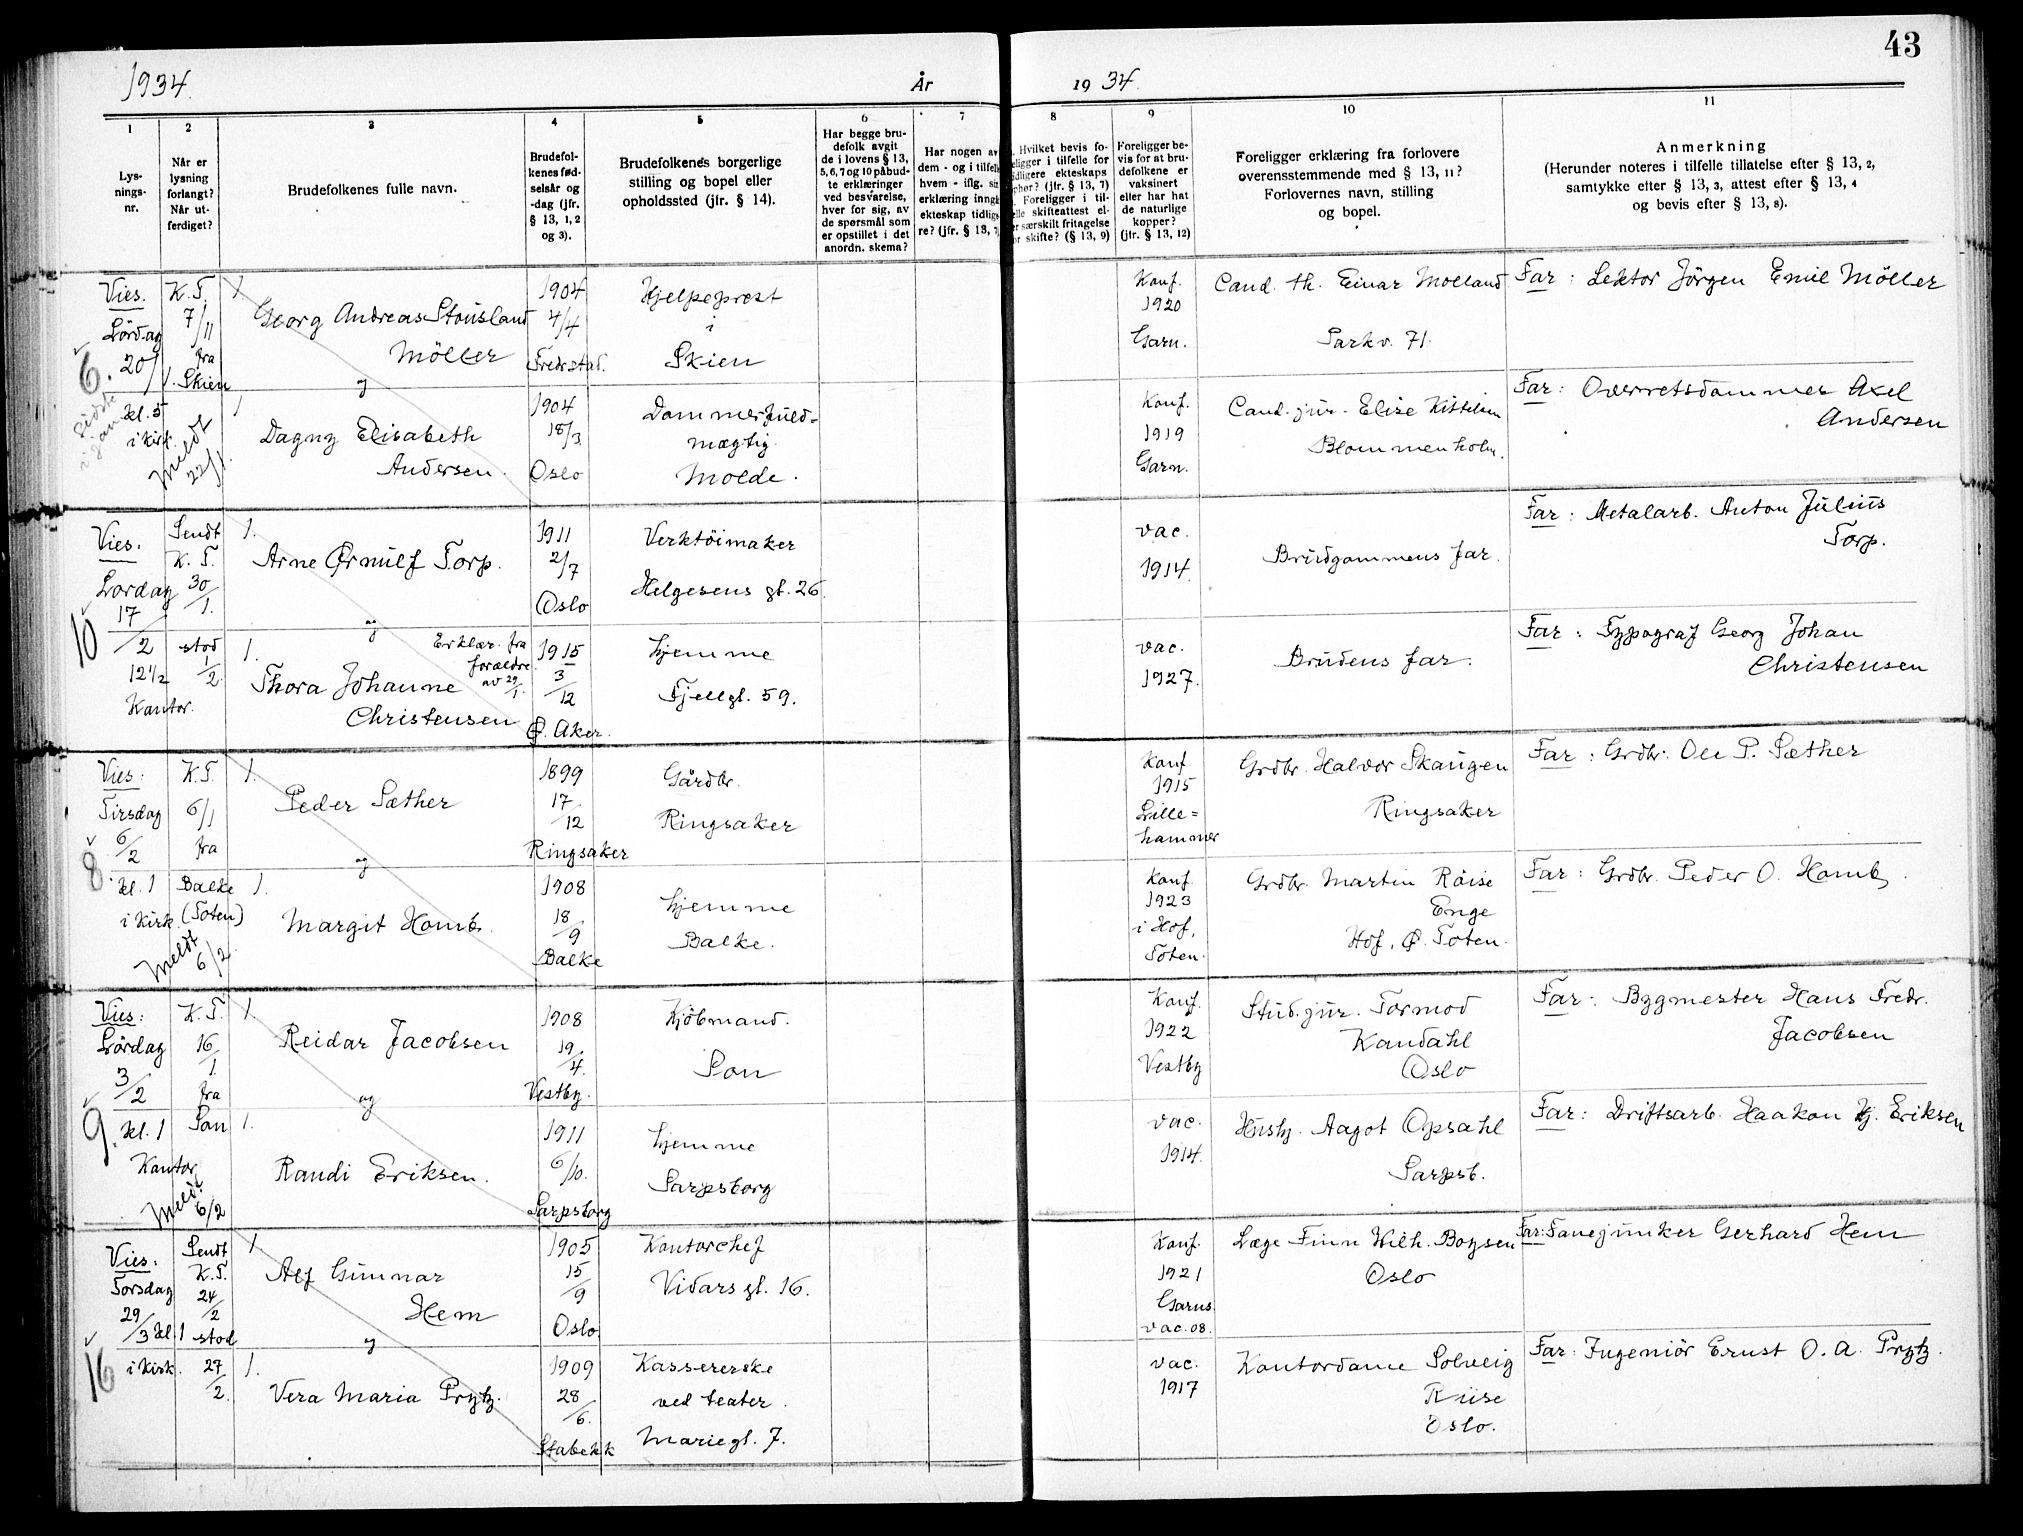 43
1934.
År
19 34.
1
Lys-
nings-
nr.
2
Når er
lysning
forlangt?
Når ut-
ferdiget?
3
Brudefolkenes fulle navn.
4
Brudefol-
kenes fød-
selsår og
-dag (jfr.
§ 13, 1, 2
og 3).
5
Brudefolkenes borgerlige
stilling og bopel eller
opholdssted (jfr. § 14).
6
Har begge bru-
defolk avgit
de i lovens § 13,
5, 6, 7 og 10 påbud-
te erklæringer
ved besvarelse,
hver for sig, av
de spørsmål som
er opstillet i det
anordn. skema?
7
Har nogen av
dem - og i tilfelle
hvem - iflg. sin
erklæring inngå
ekteskap tidlige
re? (jfr. § 13, 7
8
Hvilket bevis fo-
religger i tilfelle for
tidligere ekteskaps
ophør? (jfr. § 13, 7)
Foreligger i til-
felle skifteattest el-
er særskilt fritagelse
for skifte? (§ 13, 9)
9
Foreligger be-
vis for at bru-
defolkene er
vaksinert
eller har hat
de naturlige
kopper?
(jfr. § 13, 12)
10
Foreligger erklæring fra forlovere
overensstemmende med § 13, 11?
Forlovernes navn, stilling
og bopel.
11
Anmerkning
(Herunder noteres i tilfelle tillatelse efter § 13, 2,
samtykke efter § 13, 3, attest efter § 13, 4
og bevis efter § 13, 8).
6.
Vies.
Lördag
20/1.
kl. 5
i kirk.
K.T.
7/11
fra
Skien
Meldt
22/1
1
Georg Andreas Stousland
Möller
og
1904
4/4
Fredrstad.
Hjelpeprest
i
Skien
Konf.
1920
Garn.
Cand. th. Einar Molland
Parkv. 71.
Far: Lektor Jörgen Emil Möller
1
Dagny Elisabeth
Andersen.
1904
18/3
Oslo
Dommerfuld=
mægtig.
Molde.
Konf.
1919
Garn.
Cand. jur. Elise Kittelsen
Blommenholm.
Far: Overretsdommer Axel
Andersen
10
Vies:
Lördag
17/2
12 1/2
Kontor.
Sendt
K.T.
30/1.
stod
1/2.
1.
Arne Ørnulf Torp.
og
1911
2/7
Oslo
Verktöimaker
Helgesens gt. 26.
vac.
1914.
Brudgommens far.
Far: Metalarb. Anton Julius
Torp.
1.
Erklær. fra
forældre
av 29/1.
Thora Johanne
Christensen
1915
3/12
Ø. Aker.
hjemme
Fjellgt. 59.
vac.
1927.
Brudens far.
Far: Typograf Georg Johan
Christensen
8.
Vies:
Tirsdag
6/2
kl. 1
i kirk.
K.T.
6/1
fra
Balke
(Toten)
Meldt
6/2.
1.
Peder Sæther
og
1899
17/12
Ringsaker
Gårdbr.
Ringsaker
Konf.
1915
Lille=
hammer
Grdbr. Halvor Skaugen
Ringsaker
Far: Grdbr. Ole P. Sæther
1.
Margit Homb.
1908
18/9
Balke
hjemme
Balke.
Konf.
1923
i Hof,
Toten.
Grdbr. Martin Röise
Enge
Hof, Ø. Toten.
Far: Grdbr. Peder O. Homb.
9.
Vies:
Lördag
3/2
kl. 1
Kontor
K.T.
16/1.
fra
Son
Meldt
6/2
1.
Reidar Jacobsen
og
1908
19/4.
Vestby.
Kjöbmand.
Son
Konf.
1922
Vestby
Stud. jur. Tormod
Kandahl
Oslo
Far: Bygmester Hans Fredr.
Jacobsen
1.
Randi Eriksen.
1911
6/10.
Sarpsborg
hjemme
Sarpsborg
vac.
1914.
Husby. Aagot Opsahl
Sarpsb.
Far: Driftsarb. Haakon Kj. Eriksen
16
Vies:
Torsdag
29/3 kl. 1
i kirk.
Sendt
K.T.
24/2
stod
27/2.
1.
Alf Gunnar
Hem
og
1905
15/9
Oslo
Kontorchef
Vidars gt. 16.
Konf.
1921
Garns.
vac. 08.
Læge Finn Wilh. Boysen
Oslo
Far: Fanejunker Gerhard Hem
1.
Vera Maria Prytz.
1909
28/6.
Stabekk
Kassererske
ved teater.
Mariegt. 7.
vac.
1917
Kontordame Solveig
Riise
Oslo.
Far: Ingeniör Ernst O. A. Prytz.